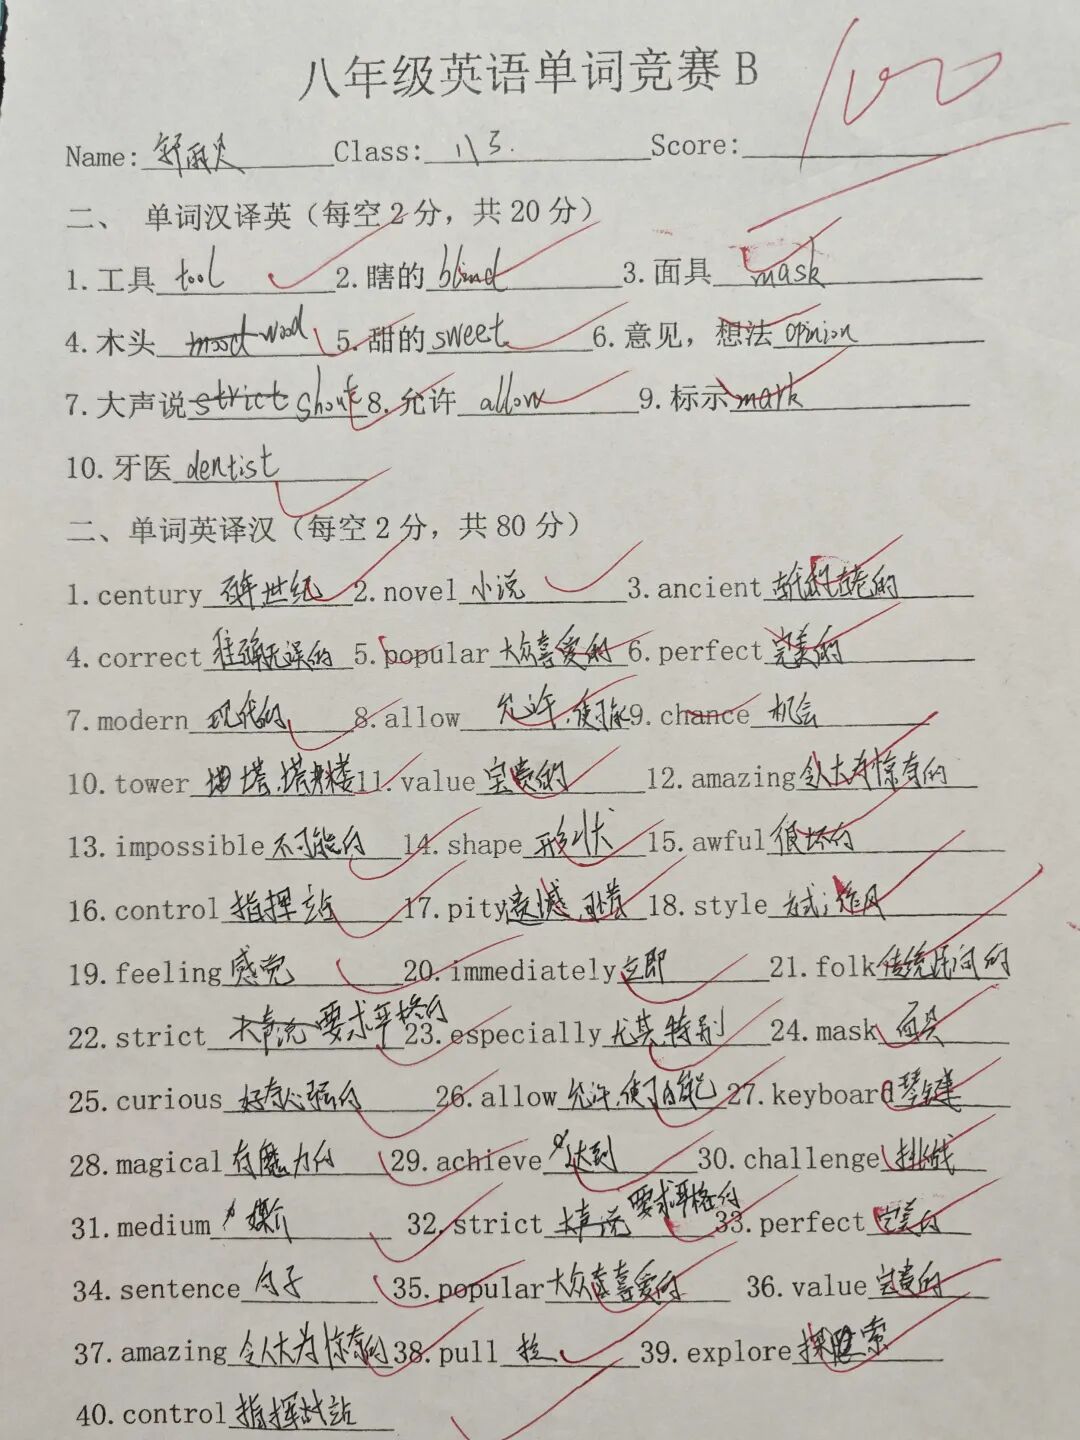 八年级英语单词竞赛 B
100
Name: Class: 八3. Score:
二、 单词汉译英（每空2分，共20分）
1.工具 tool 2.瞎的 blind 3.面具 mask
4.木头 wood 5.甜的 sweet 6.意见，想法 opinion
7.大声说 strict shout 8.允许 allow 9.标示 mark
10.牙医 dentist
二、单词英译汉（每空2分，共80分）
1.century 百年 世纪 2.novel 小说 3.ancient
4.correct 准确无误的 5.popular 大众喜爱的 6.perfect 完美的
7.modern 现代的 8.allow 允许，使可能 9.chance 机会
10.tower 塔，塔楼 11.value 宝贵的 12.amazing 令人大为惊奇的
13.impossible 不可能的 14.shape 形状 15.awful 很坏的
16.control 指挥站 17.pity 遗憾，可惜 18.style 方式；作风
19.feeling 感觉 20.immediately 立即 21.folk 传统民间的
22.strict 大声说 要求严格的 23.especially 尤其 特别 24.mask 面具
25.curious 好奇心强的 26.allow 允许，使可能 27.keyboard 琴键
28.magical 有魔力的 29.achieve 达到 30.challenge 挑战
31.medium 媒介 32.strict 大声说 要求严格的 33.perfect 完美的
34.sentence 句子 35.popular 大众喜爱的 36.value 宝贵的
37.amazing 令人大为惊奇的 38.pull 拉 39.explore 探索
40.control 指挥战站